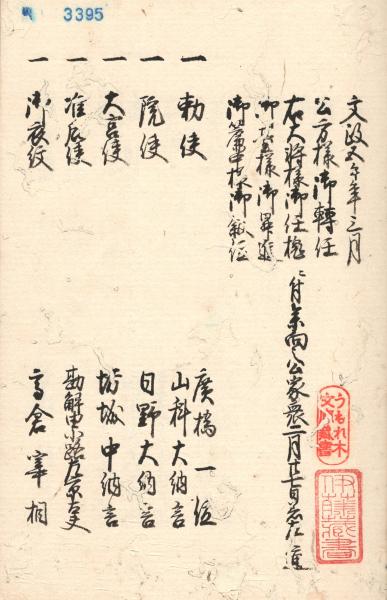 3395
文政五午年三月
公方様御轉任
右大将様御任槐
御昇進
御簾中様御叙位
ニ付参向公家衆二月廿七日
一 勅使
廣橋一位
山科大納言
一 院使
日野大納言
一 大宮使
坊城中納言
一 准后使
勘解由小路
一 御衣紋
高倉宰相
うもれ木文庫
伊勢藏書